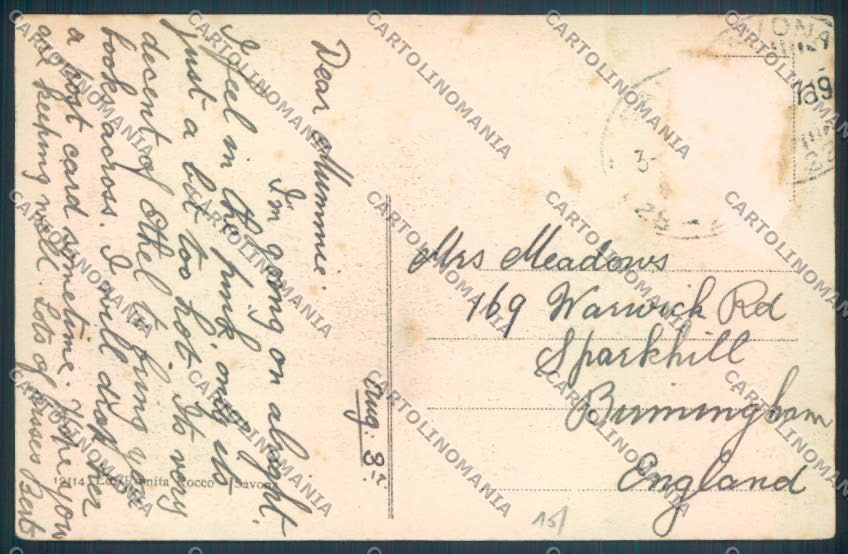 Dear Mummie.
I'm going on alright.
I feel in the pink, only its
just a bit too hot. Its very
decent of Ethel to bring your
book across. I will drop her
a post card sometime. Hope you
are keeping well. Lots of kisses Bert
Aug. 3rd
Mrs Meadows
169 Warwick Rd
Sparkhill
Birmingham
England
19114 Ed. Romita Rocco - Savona
15/
CARTOLINOMANIA